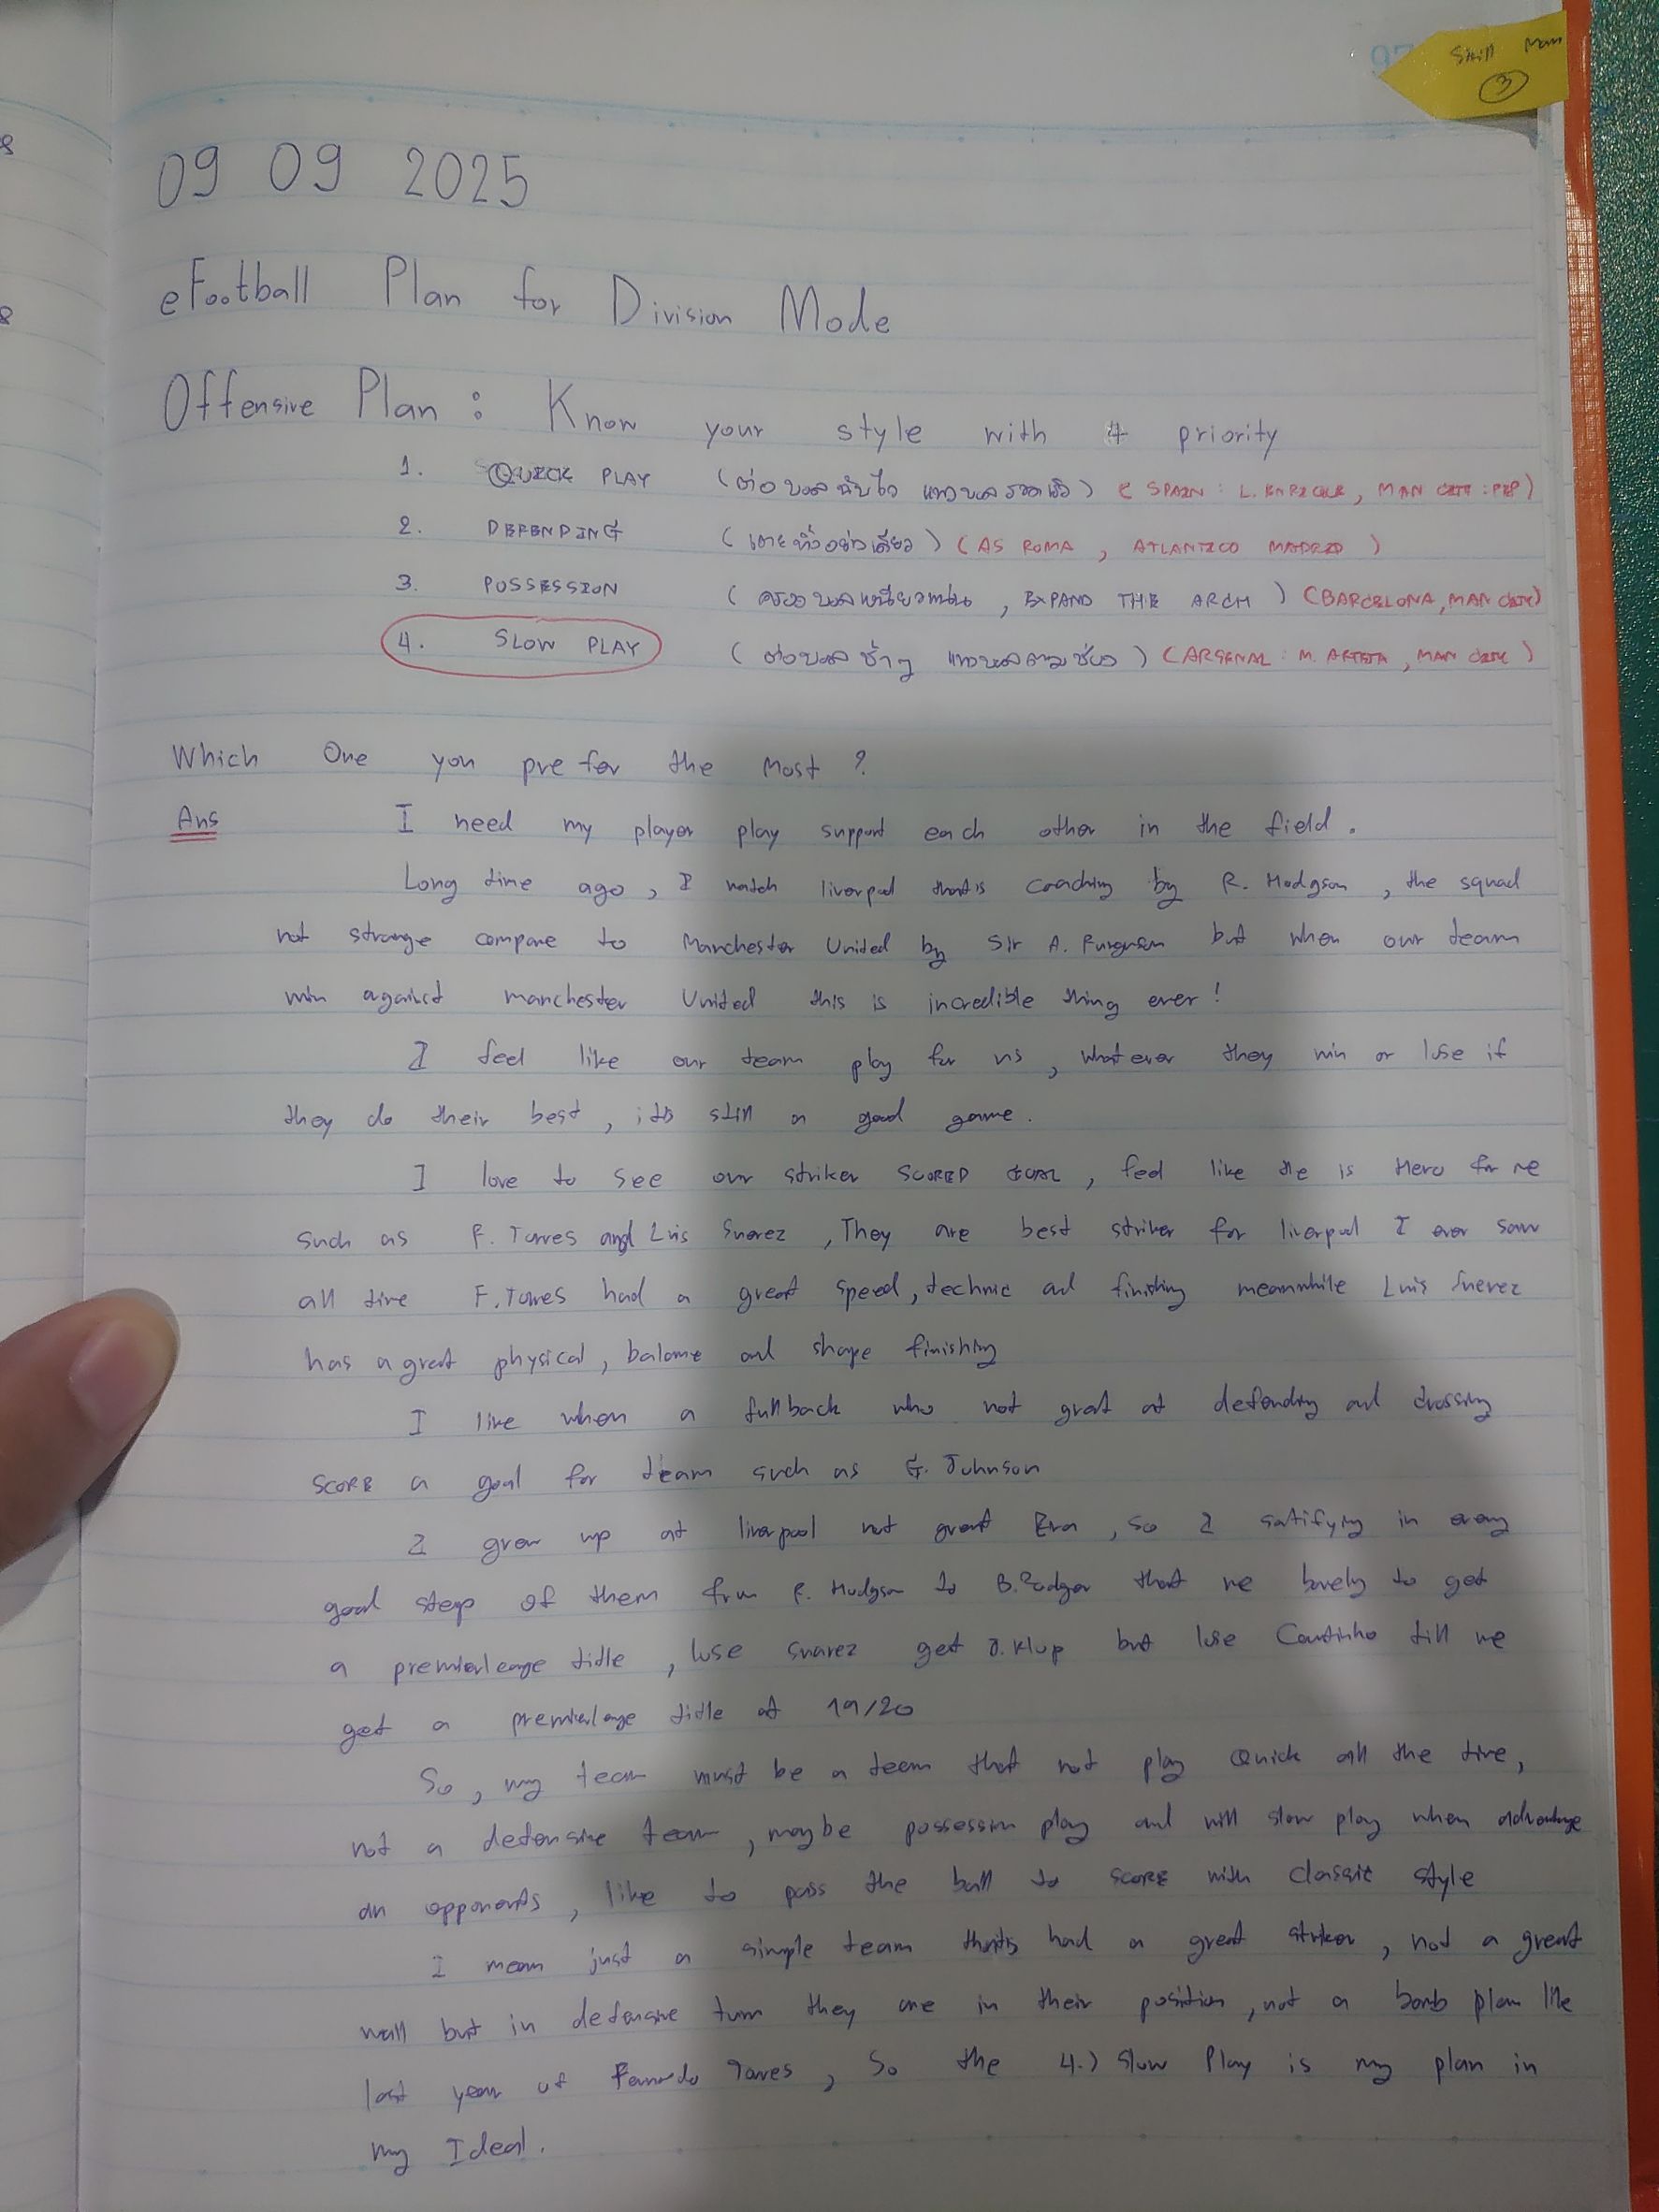 Skill Man
3
09 09 2025
eFootball Plan for Division Mode
Offensive Plan : Know your style with 4 priority
1. QUICK PLAY (ต่อบอลฉับไว แทงบอลรวดเร็ว) ( SPAIN : L. ENRIQUE, MAN CITY : PEP)
2. DEFENDING (เตะทิ้งอย่างเดียว) (AS ROMA , ATLANTICO MADRID )
3. POSSESSION ( ครองบอลเหนียวแน่น , EXPAND THE ARCH ) (BARCELONA, MAN CITY)
4. SLOW PLAY ( ต่อบอลช้าๆ แทงบอลตามช่อง ) (ARSENAL : M. ARTETA , MAN CITY )
Which One you prefer the Most ?
Ans I need my player play support each other in the field .
Long time ago , I watch liverpool that is coaching by R. Hodgson , the squad
not strange compare to Manchester United by Sir A. but when our team
win against manchester United this is incredible thing ever !
I feel like our team play for us , what ever they win or lose if
they do their best , its still a good game .
I love to see our striker SCORED GOAL , feel like He is Hero for me
such as F. Torres and Luis Suarez , They are best striker for liverpool I ever saw
all time F. Torres had a great speed, technic and finishing meanwhile Luis Suarez
has a great physical, balance and shape finishing
I like when a fullback who not great at defending and crossing
SCORE a goal for team such as G. Johnson
I grow up at liverpool not great Era , so I satifying in every
good step of them from R. Hodgson to B. Rodger that we barely to get
a premierleage title , lose suarez get J. Klop but lose Coutinho till we
get a premierleage title at 19/20
So , my team must be a team that not play Quick all the time,
not a defensive team , maybe possession play and will slow play when advantage
an opponents , like to pass the ball to SCORE with classic style
I mean just a simple team thats had a great striker , not a great
wall but in defensive turn they are in their position , not a bomb plan like
last year of Fernando Torres , So the 4.) Slow Play is my plan in
my Ideal .